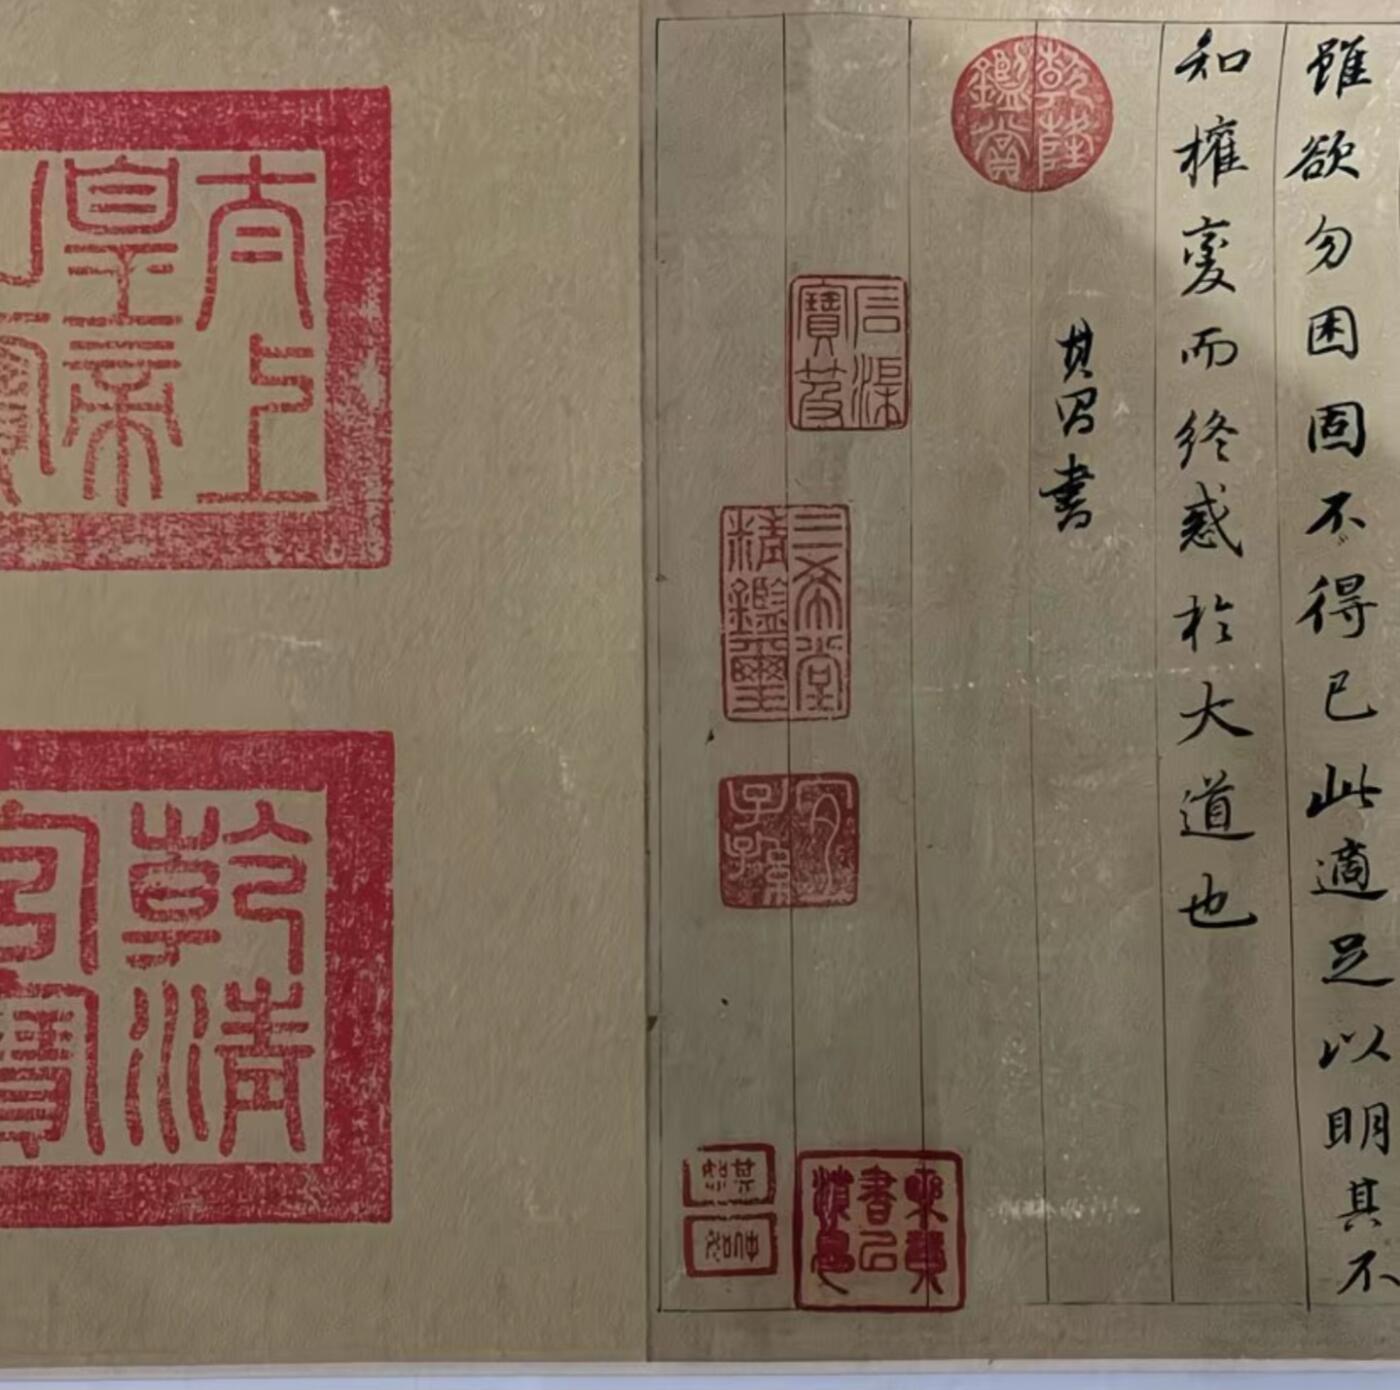 雖欲勿困固不得已此適足以明其不
知權變而終惑於大道也
其昌書
乾隆鑑賞
石渠寶笈
三希堂精鑑璽
宜子孫
太上皇帝
乾清
寶